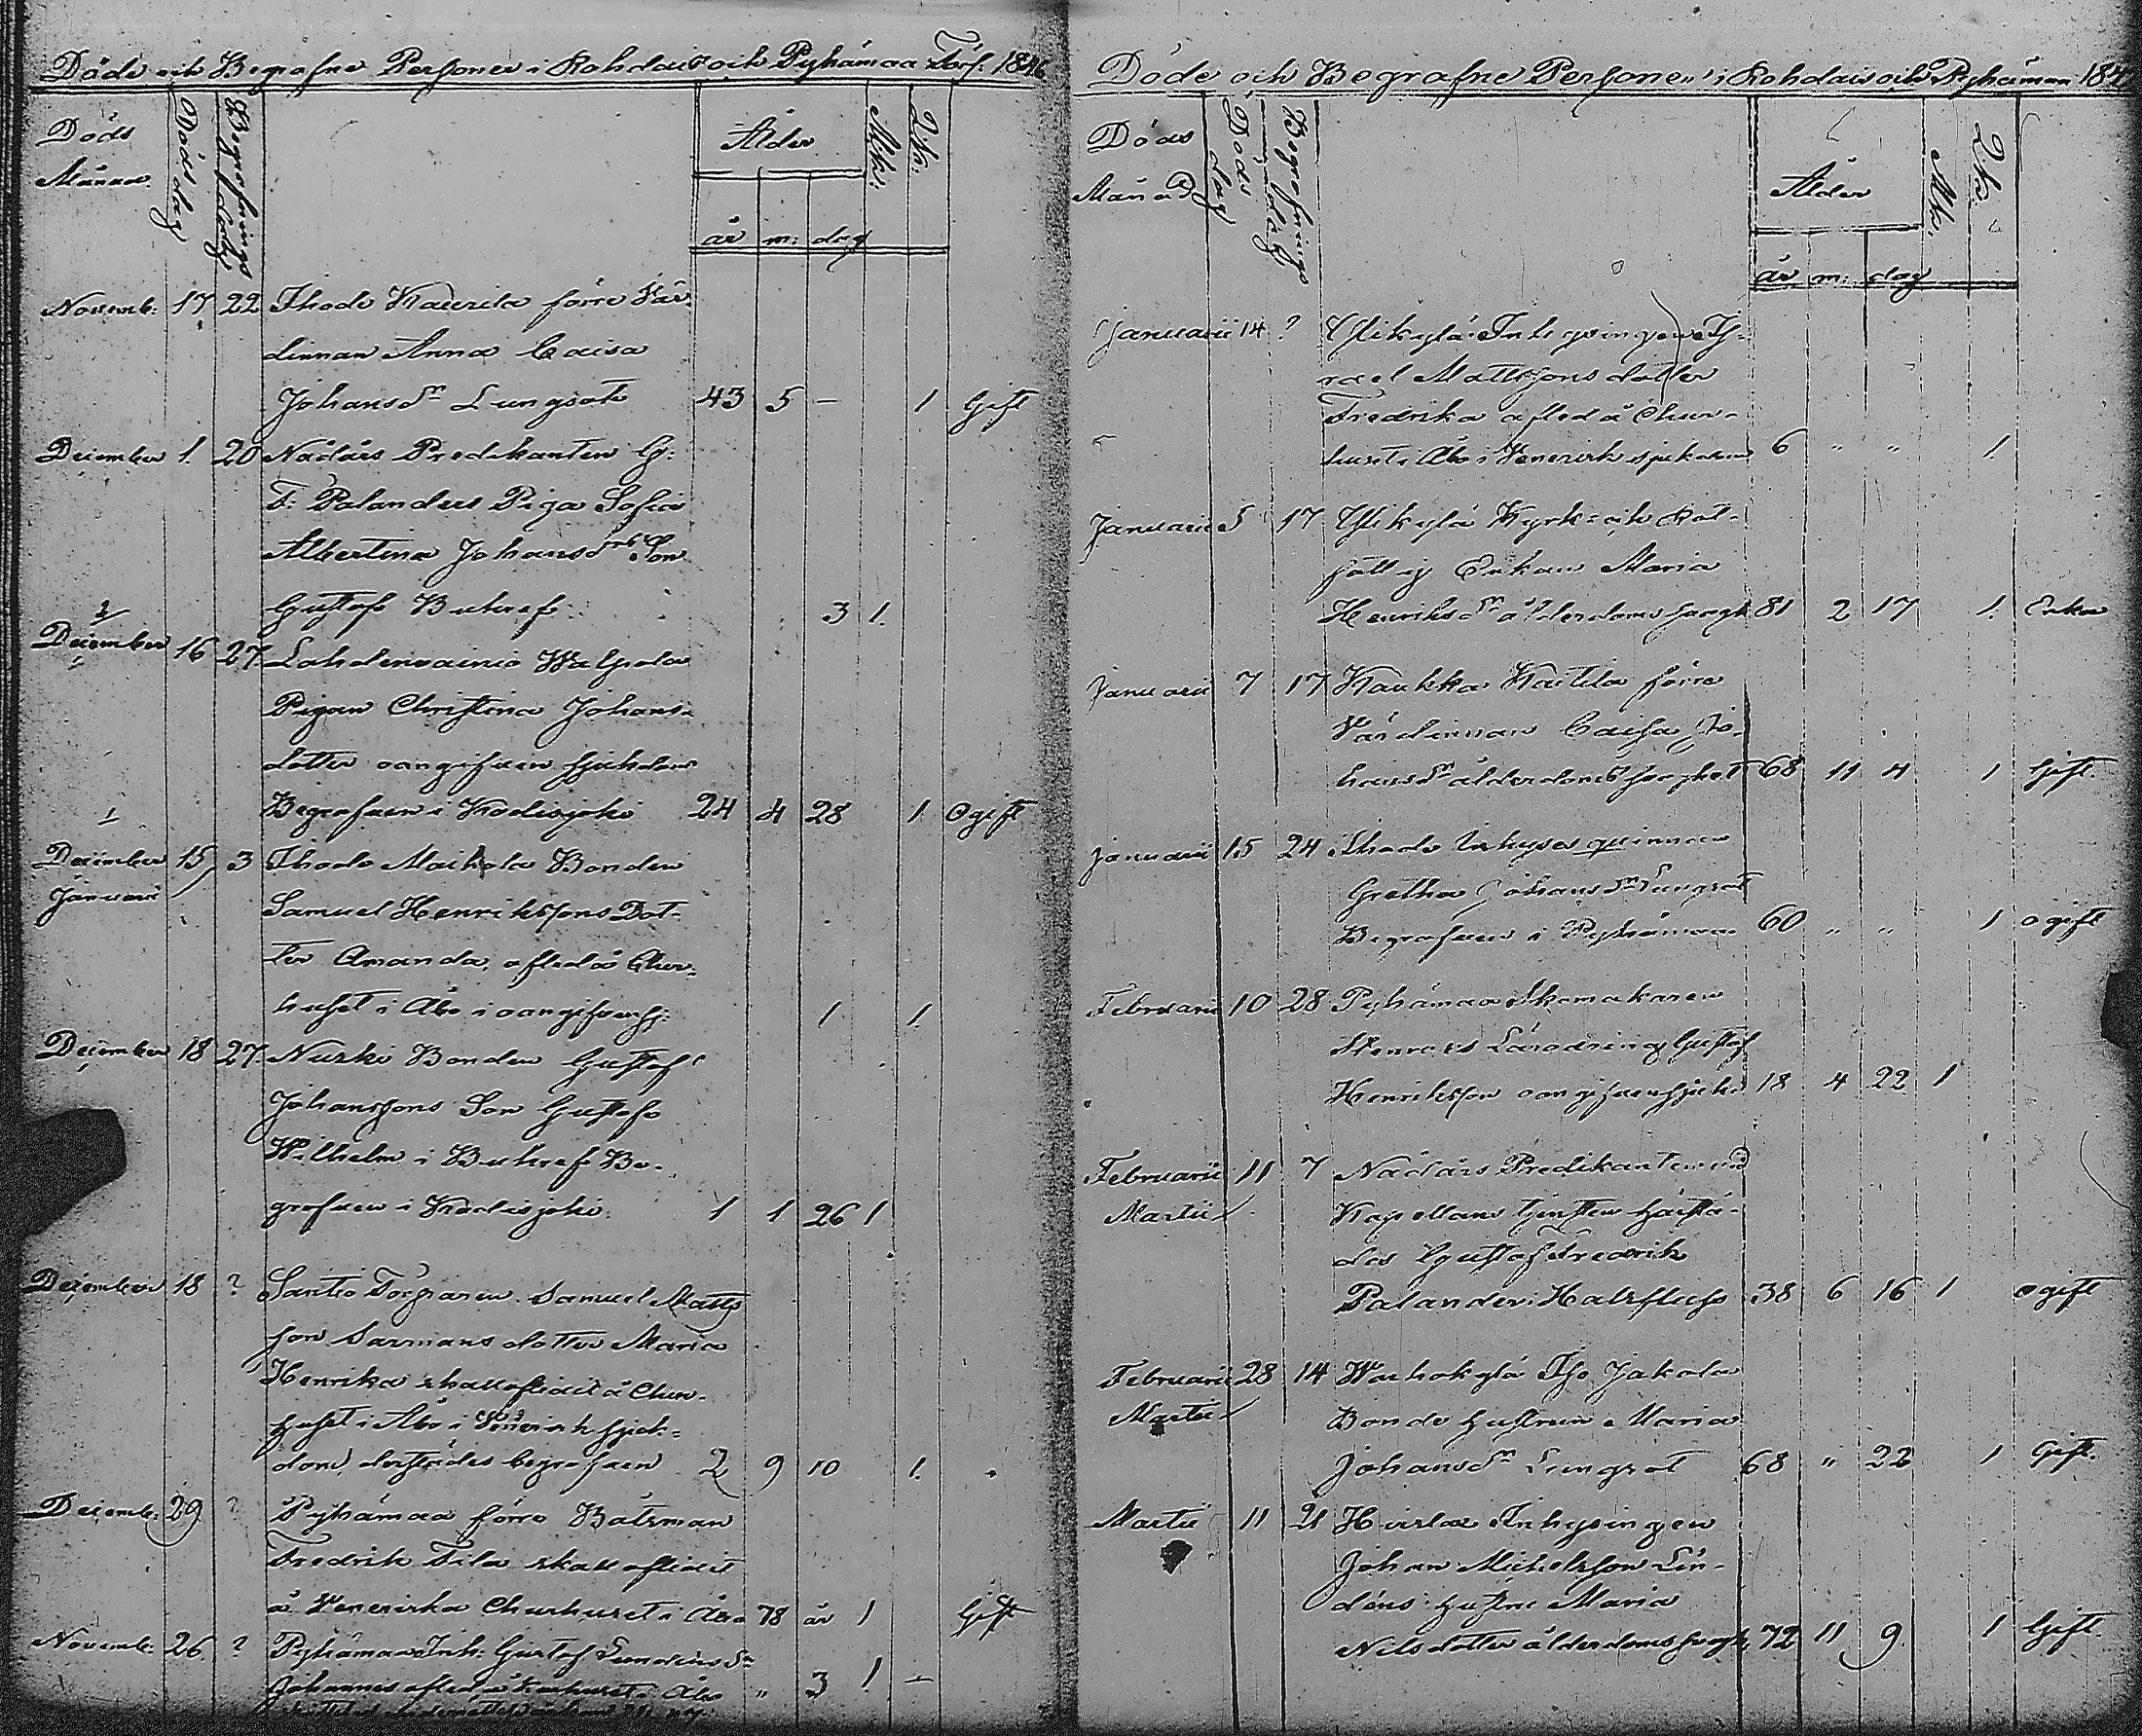 Döde och Begrafne Personer i Rohdais och Pyhämaa Förs. 1846
Döds Månad
Dödsdag
Begrafnings dag
Ålder
år m: dag
Mk:
Qk:
Novemb: 17 22 Ihode Kaurila förre Vär-
dinnan Anna Caisa
Johansdr Lungrot 43 5 – 1 Gift
December 1. 20 Nådårs Predikanten G:
F: Palanders Piga Sofia
Albertina Johansdrs Son
Gustaf Buhref: 3 1.
December 16 27 Lahdenvainio Walpola
Pigan Christina Johans-
dotter oangifven sjukdom
Begrafven i Kodisjoki 24 4 28 1 Ogift
December 15 3 Ihode Maikola Bonden
Januari Samuel Henrikssons Dot-
ter Amanda, afled å Chur-
huset i Åbo i oangifven sj: 1 1.
December 18 27. Nurki Bonden Gustaf
Johanssons Son Gustaf
Wilhelm i Buhref Be-
grafven i Kodisjoki 1 1 26 1
December 18 ? Santio Torparen Samuel Matts
son Sarmans dotter Maria
Henrika skall aflidit å Chur-
huset i Åbo i Venerisk sjuk-
dom, derstädes begrafven 2 9 10 1.
Decemb: 29 ? Pyhämaa förre Båtsman
Fredrik Fila skall aflidit
å Veneriska Churhuset i Åbo 78 år 1 Gift
Novemb: 26 ? Pyhämaa Inh: Gustaf Lundens Sn
Johannes afled å Kurhuset i Åbo " 3 1 –
Döde och Begrafne Personer i Rohdais och Pyhämaa 184
Döds Månad
Döds dag
Begrafnings dag
Ålder
år m: dag
Mk:
Qk:
Januarii 14 ? Ylikylä Inhysingen Is-
rael Mattssons dotter
Fredrika afled å Chur-
huset i Åbo i Venerisk sjukdom 6 " " 1.
Januarii 5 17 Ylikylä Kyrk- och Rot-
hjon Enkan Maria
Henriksdr ålderdomssvagh 81 2 17 1. Enka
Januarii 7 17 Kaukka Kaitila förre
Värdinnan Caisa Jo-
hansdr ålderdomssvaghet 68 11 4 1 Gift.
Januarii 15 24 Ihode Inhyses qvinnan
Gretha Johansdr Lungrot
Begrafven i Pyhämaa 60 " " 1 ogift
Februarii 10 28 Pyhämaa Skomakaren
Stenroos Lärodräng Gustaf
Henriksson oangifven sjuk: 18 4 22 1
Februarii 11 7 Nådårs Predikanten vid
Martii Kapellans tjensten härstä-
des Gustaf Fredrik
Palander i Halsfluss 38 6 16 1 ogift
Februarii 28 14 Warhokylä Iso Jakola
Martii Bonde hustrun Maria
Johansdr Lungrot 68 " 22 1 Gift.
Martii 11 21 Hirslax Inhysingen
Johan Michelsson Lin-
déns hustru Maria
Nilsdotter ålderdomssvagh 72 11 9 1 Gift.